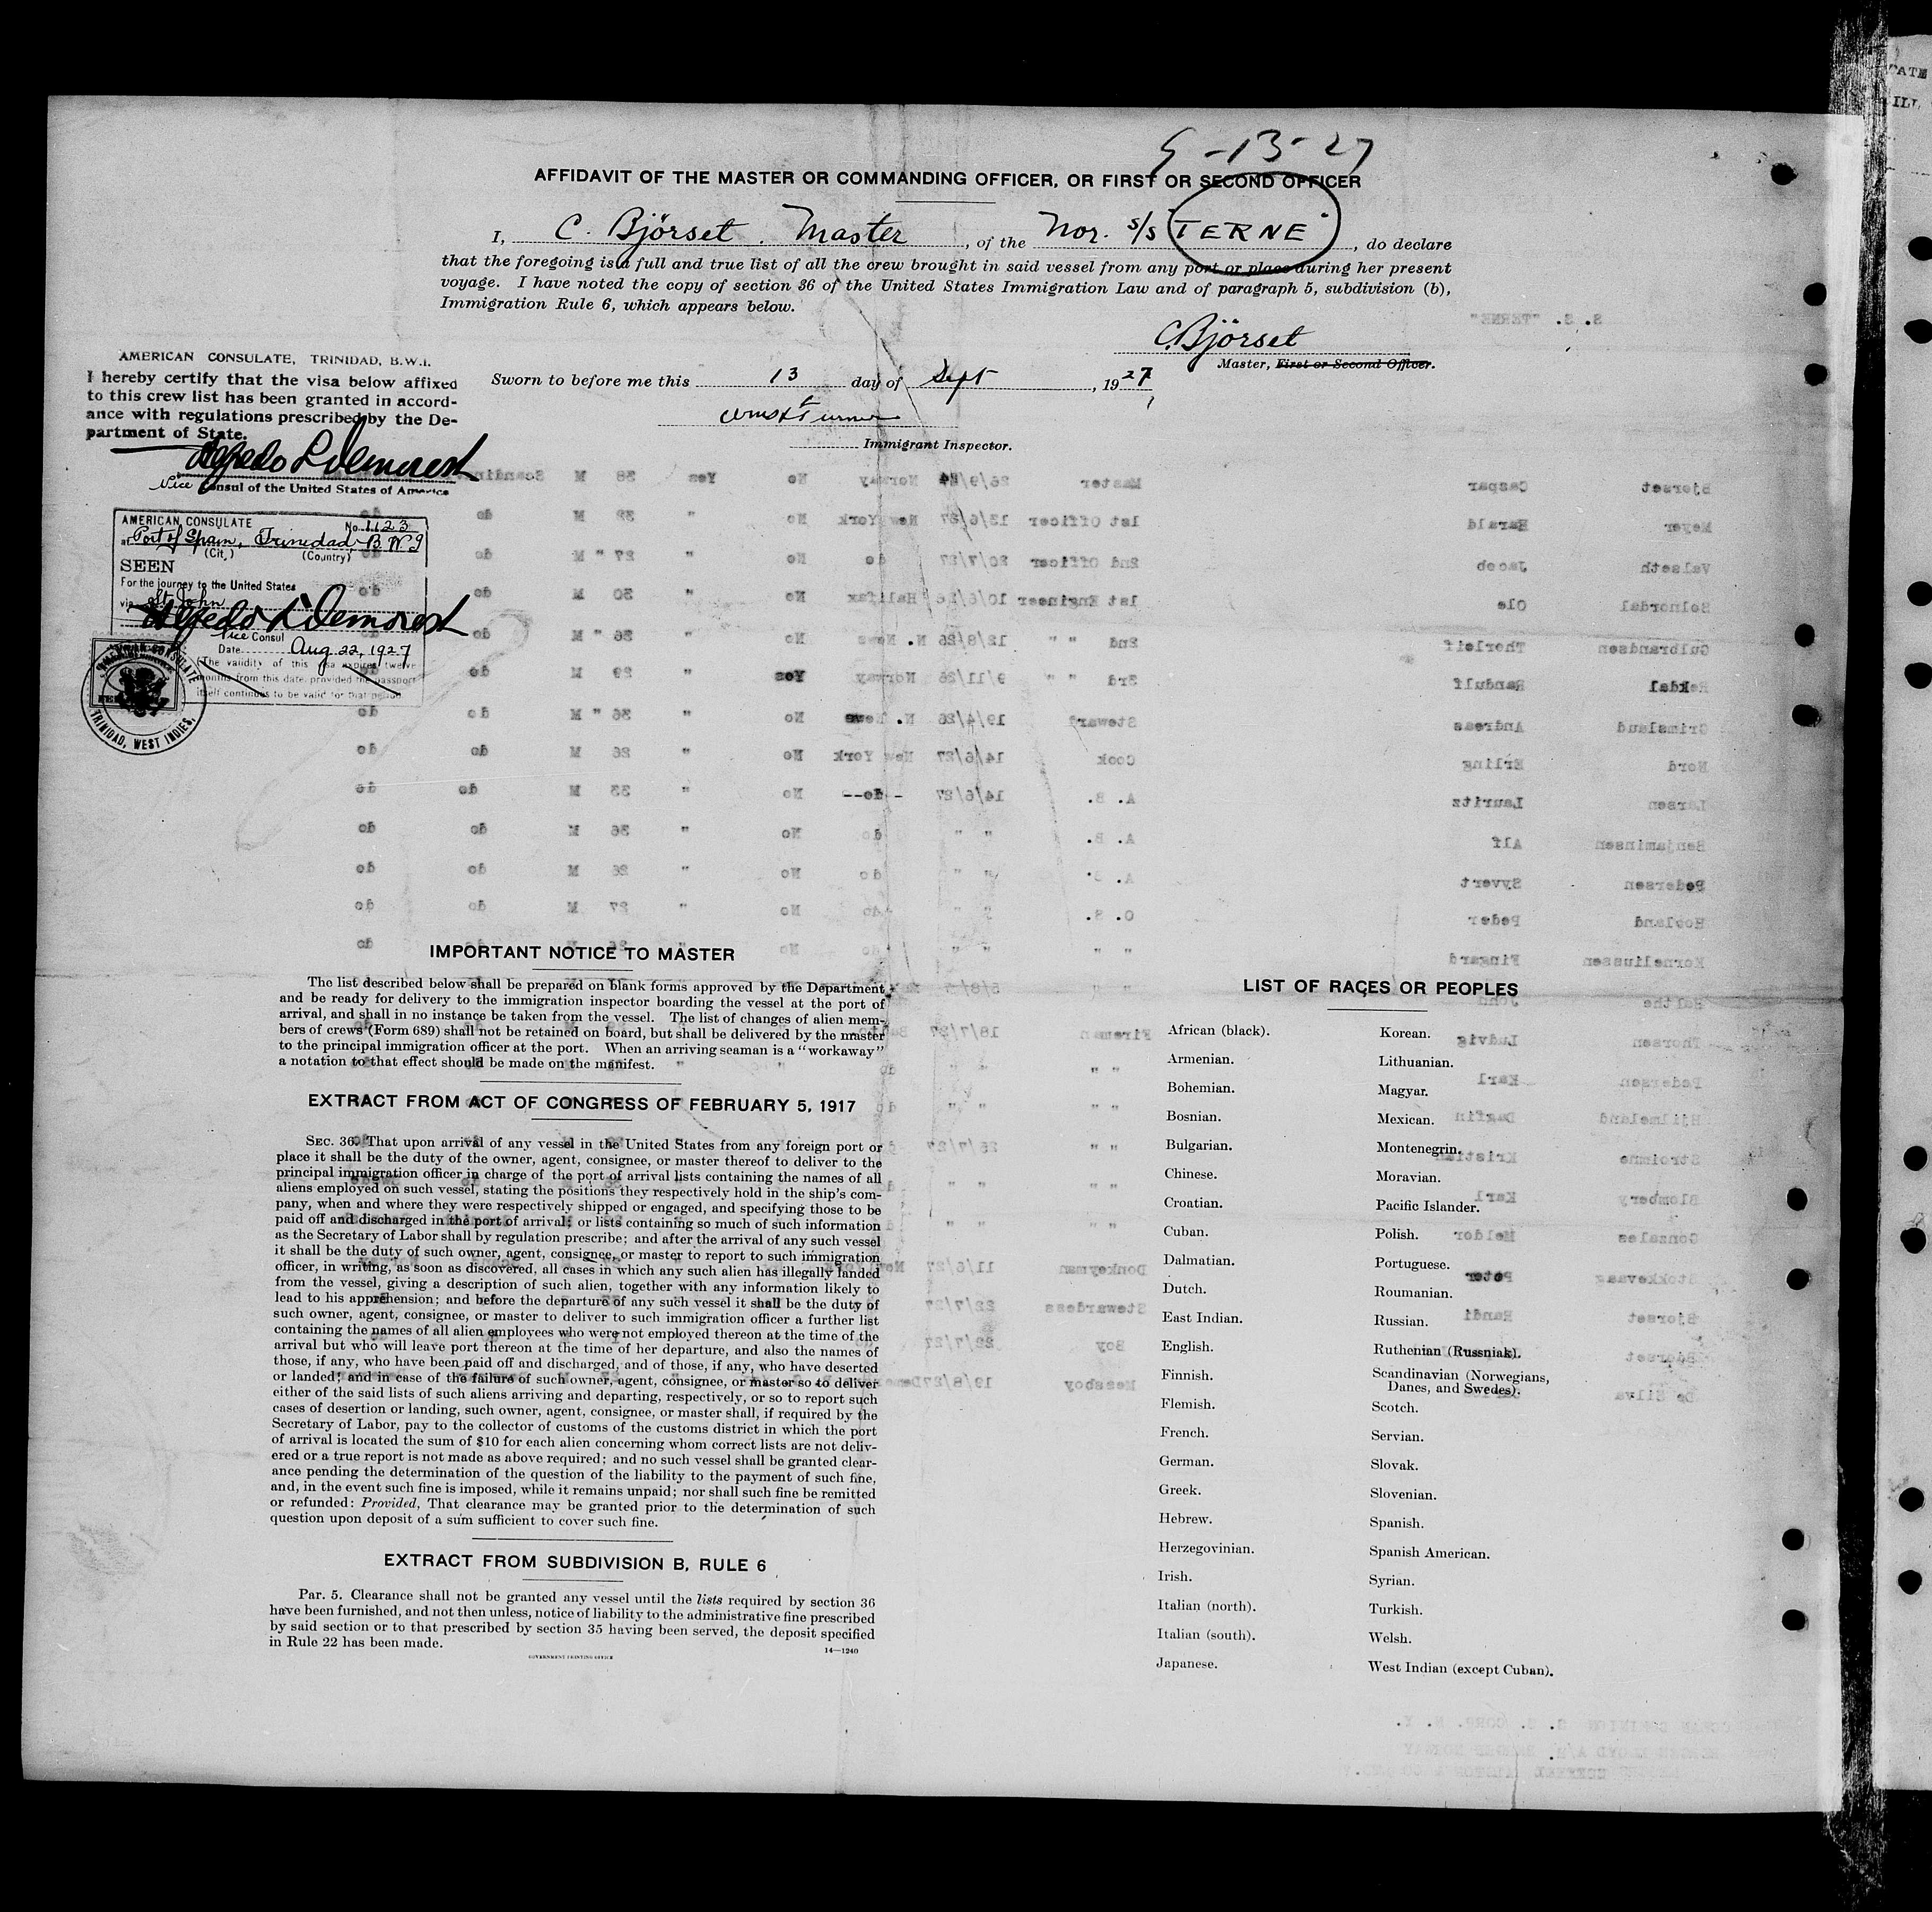 9-13-27
AFFIDAVIT OF THE MASTER OR COMMANDING OFFICER, OR FIRST OR SECOND OFFICER
I, C. Björset. Master, of the Nor. s/s "TERNE", do declare
that the foregoing is a full and true list of all the crew brought in said vessel from any port or place during her present
voyage. I have noted the copy of section 36 of the United States Immigration Law and of paragraph 5, subdivision (b),
Immigration Rule 6, which appears below.
C. Björset
Master, First or Second Officer.
Sworn to before me this 13 day of Sept, 1927
Immigrant Inspector.
AMERICAN CONSULATE, TRINIDAD, B.W.I.
I hereby certify that the visa below affixed
to this crew list has been granted in accord-
ance with regulations prescribed by the De-
partment of State.
Alfredo L Demorest
Vice Consul of the United States of America
AMERICAN CONSULATE No. 1123
at Port of Spain, Trinidad B.W.I
(City) (Country)
SEEN
For the journey to the United States
via St. John
Alfredo L Demorest
Vice Consul
Date Aug 22, 1927
(The validity of this visa expires twelve
months from this date provided the passport
itself continues to be valid for that period.
AMERICAN CONSULATE
TRINIDAD, WEST INDIES.
IMPORTANT NOTICE TO MASTER
The list described below shall be prepared on blank forms approved by the Department
and be ready for delivery to the immigration inspector boarding the vessel at the port of
arrival, and shall in no instance be taken from the vessel. The list of changes of alien mem-
bers of crews (Form 689) shall not be retained on board, but shall be delivered by the master
to the principal immigration officer at the port. When an arriving seaman is a "workaway"
a notation to that effect should be made on the manifest.
EXTRACT FROM ACT OF CONGRESS OF FEBRUARY 5, 1917
SEC. 36. That upon arrival of any vessel in the United States from any foreign port or
place it shall be the duty of the owner, agent, consignee, or master thereof to deliver to the
principal immigration officer in charge of the port of arrival lists containing the names of all
aliens employed on such vessel, stating the positions they respectively hold in the ship's com-
pany, when and where they were respectively shipped or engaged, and specifying those to be
paid off and discharged in the port of arrival; or lists containing so much of such information
as the Secretary of Labor shall by regulation prescribe; and after the arrival of any such vessel
it shall be the duty of such owner, agent, consignee, or master to report to such immigration
officer, in writing, as soon as discovered, all cases in which any such alien has illegally landed
from the vessel, giving a description of such alien, together with any information likely to
lead to his apprehension; and before the departure of any such vessel it shall be the duty of
such owner, agent, consignee, or master to deliver to such immigration officer a further list
containing the names of all alien employees who were not employed thereon at the time of the
arrival but who will leave port thereon at the time of her departure, and also the names of
those, if any, who have been paid off and discharged, and of those, if any, who have deserted
or landed; and in case of the failure of such owner, agent, consignee, or master so to deliver
either of the said lists of such aliens arriving and departing, respectively, or so to report such
cases of desertion or landing, such owner, agent, consignee, or master shall, if required by the
Secretary of Labor, pay to the collector of customs of the customs district in which the port
of arrival is located the sum of $10 for each alien concerning whom correct lists are not deliv-
ered or a true report is not made as above required; and no such vessel shall be granted clear-
ance pending the determination of the question of the liability to the payment of such fine,
and, in the event such fine is imposed, while it remains unpaid; nor shall such fine be remitted
or refunded: Provided, That clearance may be granted prior to the determination of such
question upon deposit of a sum sufficient to cover such fine.
EXTRACT FROM SUBDIVISION B, RULE 6
Par. 5. Clearance shall not be granted any vessel until the lists required by section 36
have been furnished, and not then unless, notice of liability to the administrative fine prescribed
by said section or to that prescribed by section 35 having been served, the deposit specified
in Rule 22 has been made.
14—1240
GOVERNMENT PRINTING OFFICE
LIST OF RACES OR PEOPLES
African (black).
Armenian.
Bohemian.
Bosnian.
Bulgarian.
Chinese.
Croatian.
Cuban.
Dalmatian.
Dutch.
East Indian.
English.
Finnish.
Flemish.
French.
German.
Greek.
Hebrew.
Herzegovinian.
Irish.
Italian (north).
Italian (south).
Japanese.
Korean.
Lithuanian.
Magyar.
Mexican.
Montenegrin.
Moravian.
Pacific Islander.
Polish.
Portuguese.
Roumanian.
Russian.
Ruthenian (Russniak).
Scandinavian (Norwegians,
Danes, and Swedes).
Scotch.
Servian.
Slovak.
Slovenian.
Spanish.
Spanish American.
Syrian.
Turkish.
Welsh.
West Indian (except Cuban).